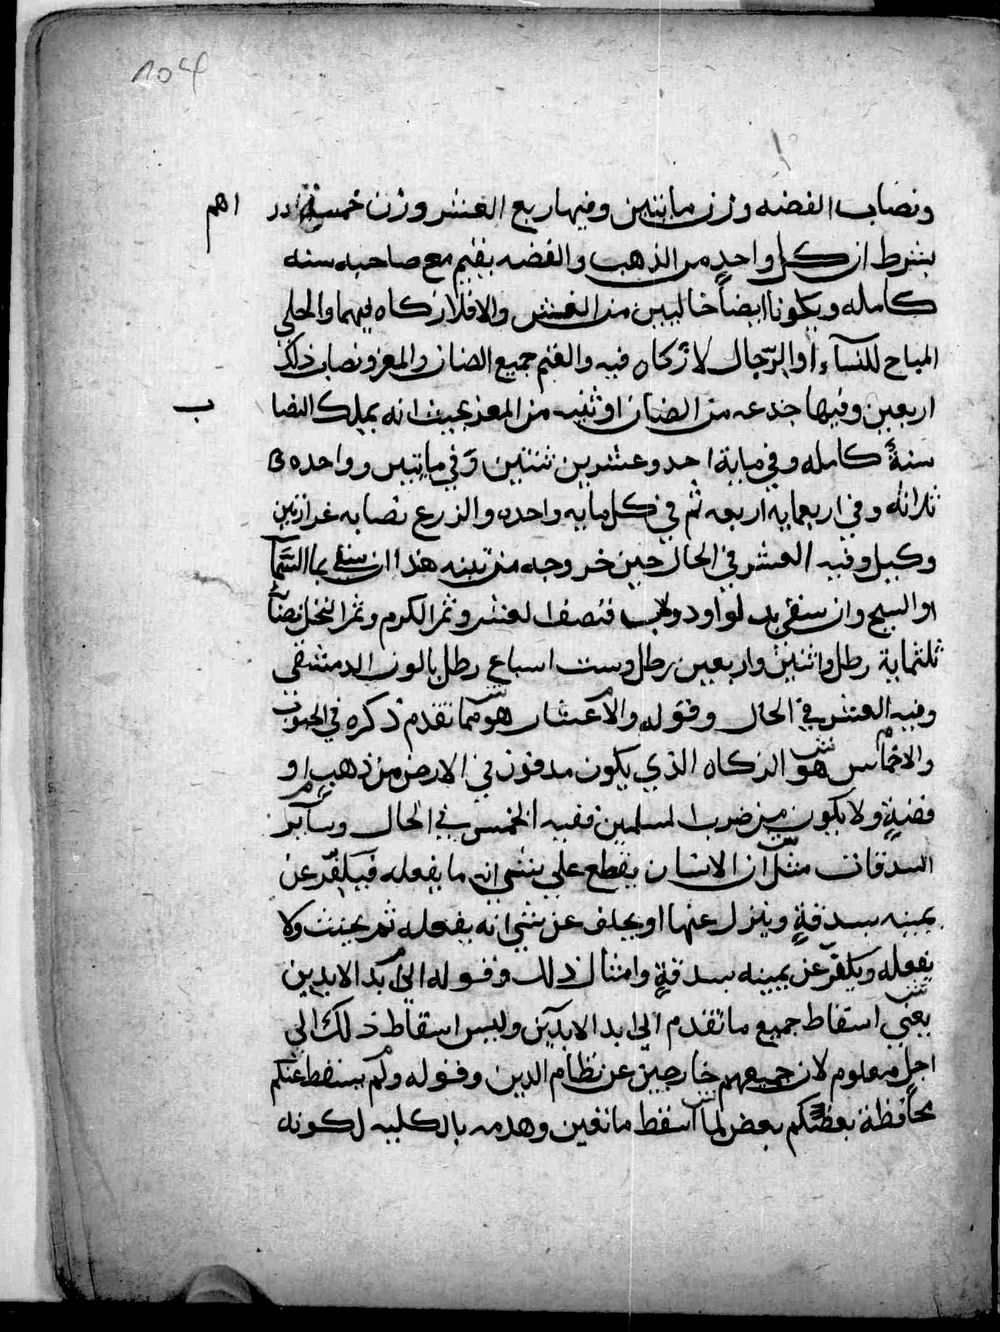 104
ونصاب الفضه وزن مايتين وفيها ربع العشر وزن خمسة در اهم
بشرط ان كل واحدٍ من الذهب والفضه يقيم مع صاحبه سنه
كامله ويكونا ايضاً خاليين من الغش والا فلا زكاه فيهما والحلي
المباح للنسآء او الرّجال لا زكاه فيه والغنم جميع الضان والمعز ونصاب ذلك
اربعين وفيها جذعه من الضان او ثنيه من المعز بحيث انه يملك النصا ب
سنةً كامله وفي ماية احد وعشرين ثنتين وفي مايتين وواحده
ثلاثه وفي اربعمايه اربعه ثم في كل مايه واحده والزرع نصابه غرارتين
وكيل وفيه العشر في الحال حين خروجه من تبنه هذا ان سقي بما السّمآ
او السيح وان سقي بدلو او دولاب فنصف العشر وثمر الكرم وثمر النخل نصابه
ثلثماية رطل واثنين واربعين رطل وست اسباع رطل بالوزن الدمشقي
وفيه العشر في الحال وقوله والاعشار هو مما تقدم ذكره في الحبوب
والاخماس هو الزكاه الذي يكون مدفون في الارض من ذهبٍ او
فضةٍ ولا يكون من ضرب المسلمين ففيه الخمس في الحال وسآير
السدقات مثل ان الانسان يقطع على شي انه ما يفعله فيكفّر عن
يمينه بسدقةٍ وينزل عنها او يحلف عن شي انه يفعله ثم يحنث ولا
يفعله ويكفّر عن يمينه بسدقةٍ وامثال ذلك وقوله الى ابد الابدين
يعني اسقاط جميع ما تقدم الى ابد الابدين وليس اسقاط ذلك الى
اجلٍ معلوم لان جميعهم خارجين عن نظام الدين وقوله ولم يسقط عنكم
محافظة بعضكم بعض لما اسقط ماتعين وهدمه بالكليه لكونه